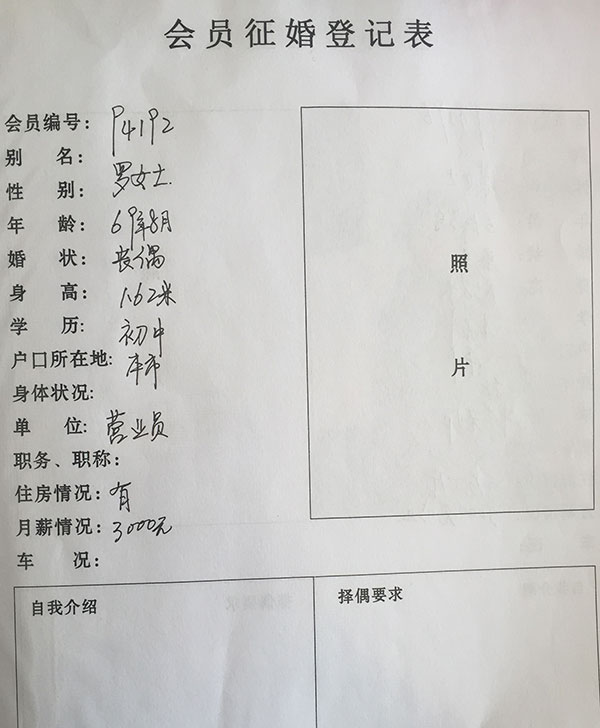 会员征婚登记表
会员编号：94192
别 名：
性 别：罗女士.
年 龄：69年8月
婚 状：丧偶
身 高：1.62米
学 历：初中
户口所在地：本市
身体状况:
单 位：营业员
职务、职称：
住房情况：有
月薪情况：3000元
车 况：
照
片
自我介绍
择偶要求